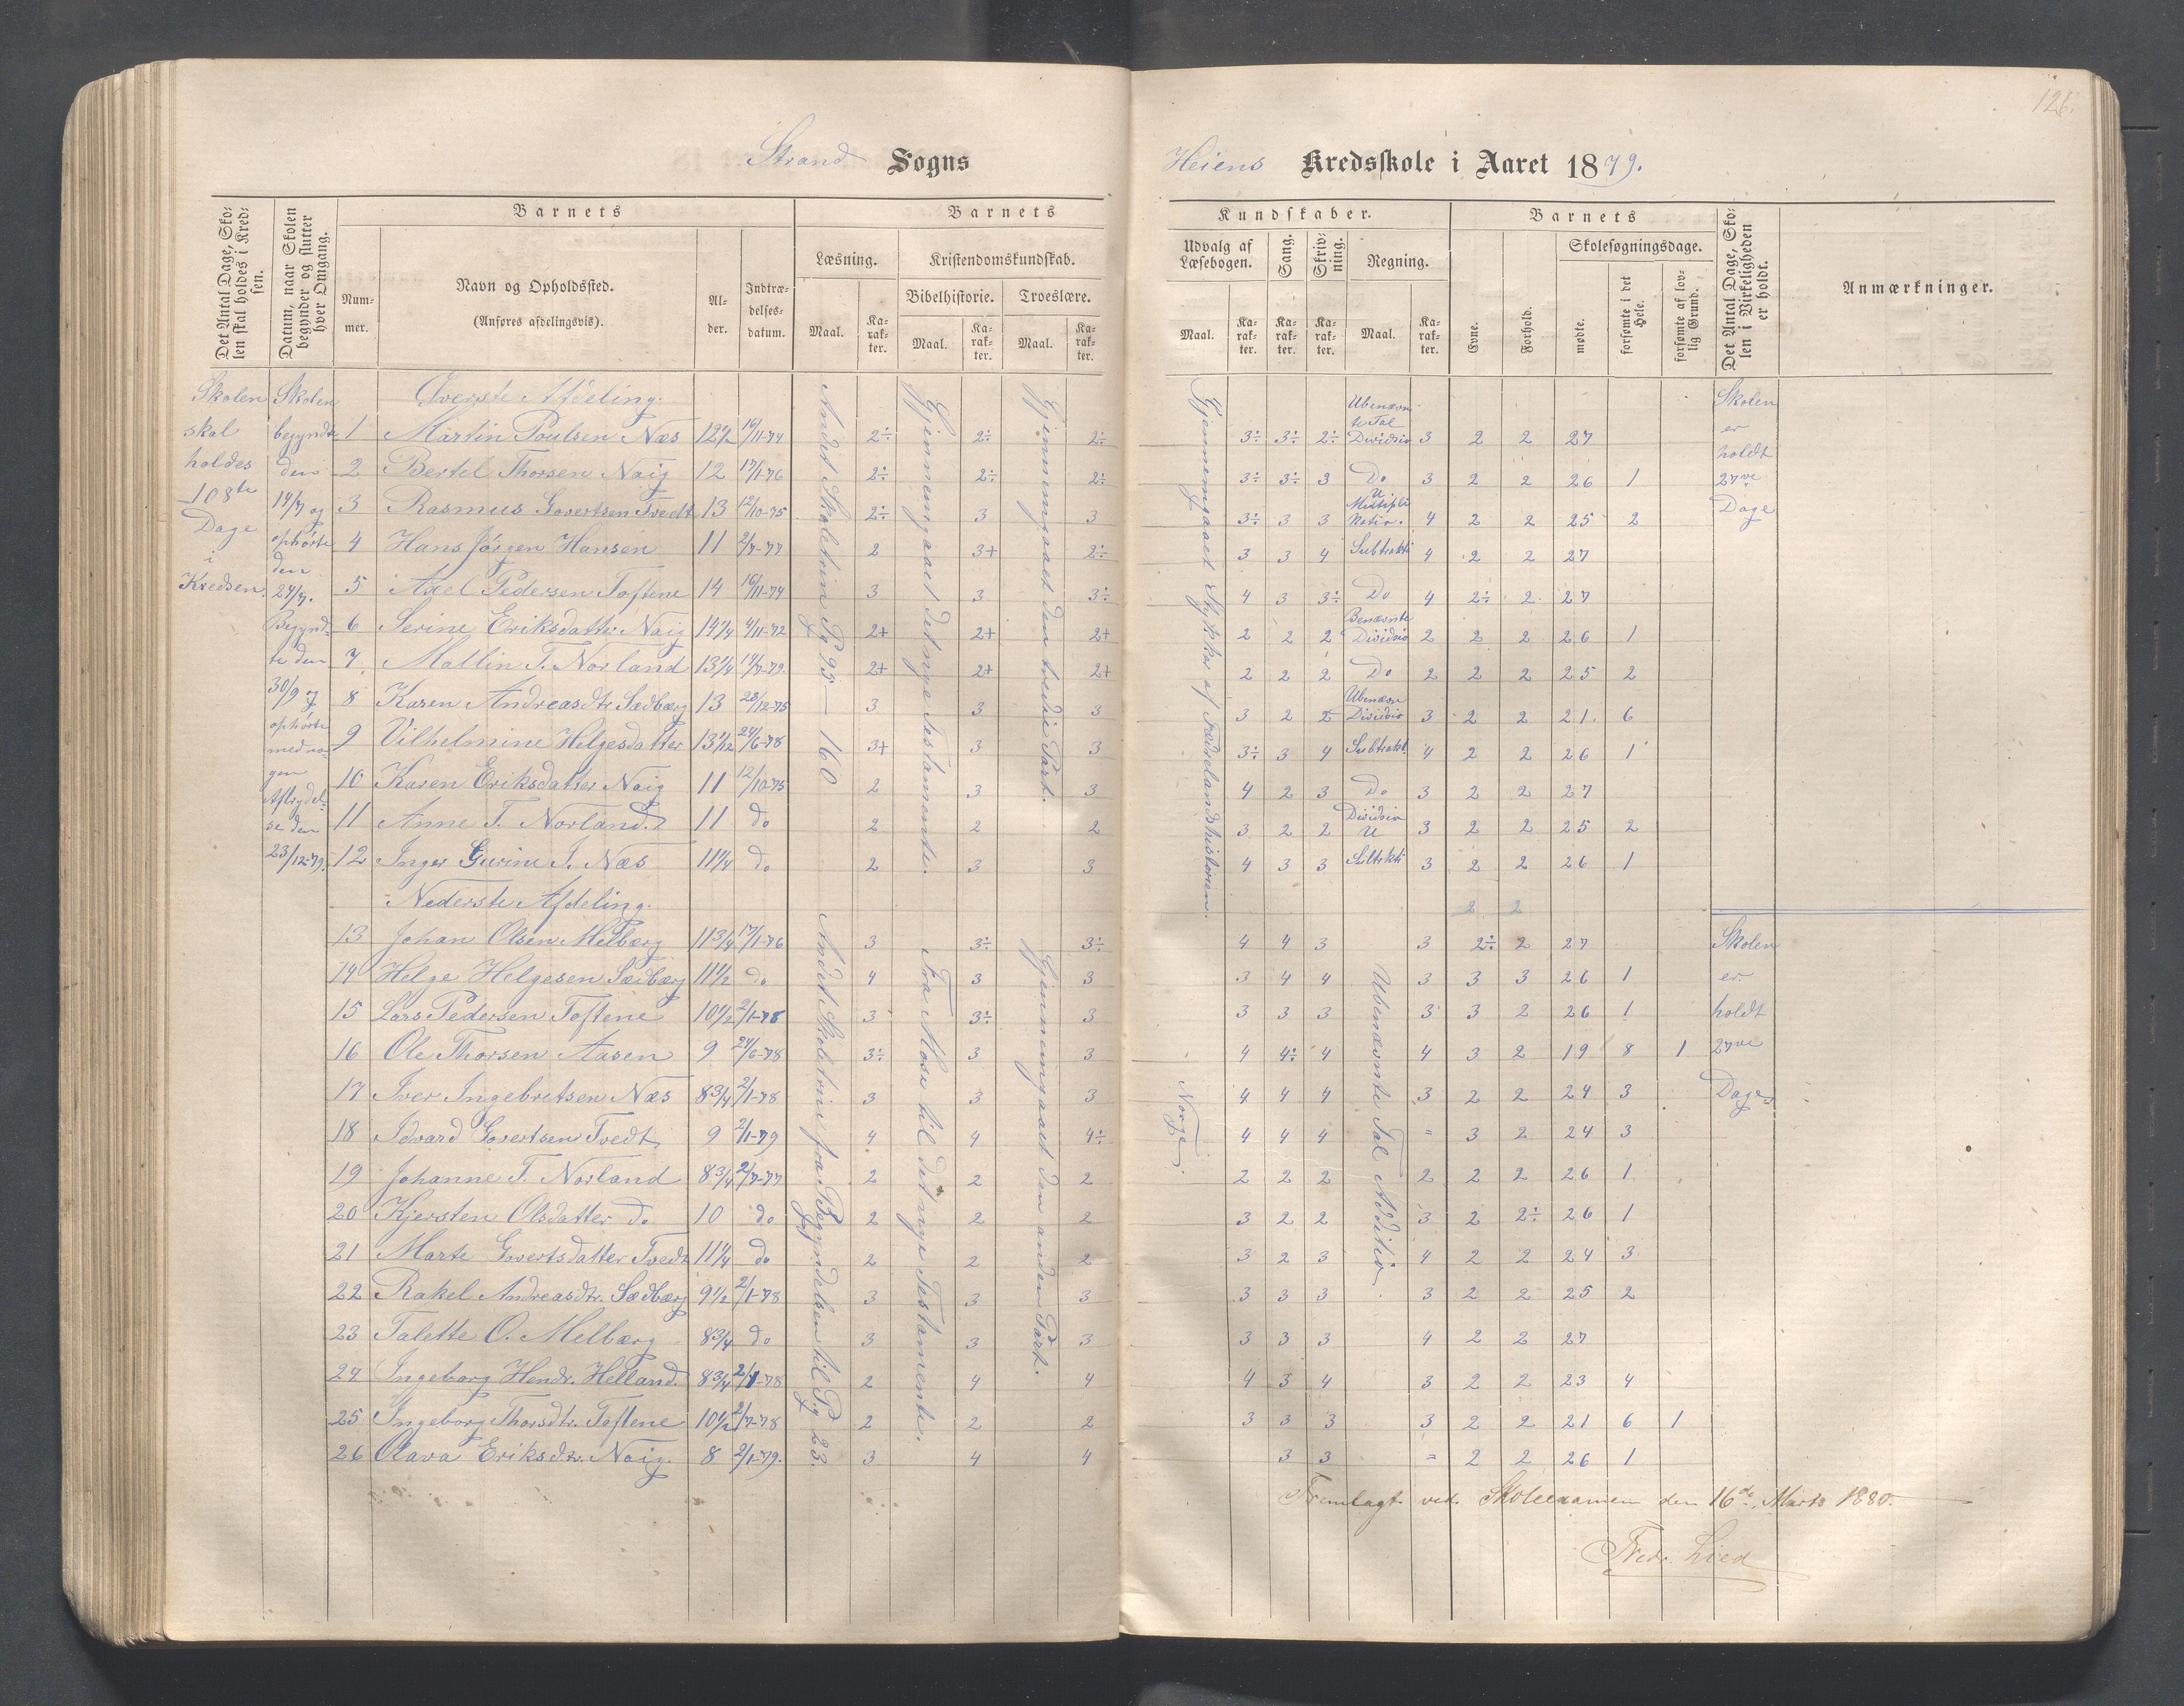 126.
Strand Sogns
Heiens Kredsskole i Aaret 1879.
Det Antal Dage, Skolen skal holdes i Kredsen.
Datum, naar Skolen begynder og slutter hver Omgang.
Barnets
Nummer.
Navn og Opholdssted.
(Anføres afdelingsvis).
Alder.
Indtrædelsesdatum.
Barnets
Læsning.
Maal.
Karakter.
Kristendomskundskab.
Bibelhistorie.
Maal.
Karakter.
Troeslære.
Maal.
Karakter.
Kundskaber.
Udvalg af Læsebogen.
Maal.
Karakter.
Sang.
Karakter.
Skrivning.
Karakter.
Regning.
Maal.
Karakter.
Barnets
Evne.
Forhold.
Skolesøgningsdage.
mødte.
forsømte i det Hele.
forsømte af lovlig Grund.
Det Antal Dage, Skolen i Virkeligheden er holdt.
Anmærkninger.
Skolen skal holdes 108te Dage i Kredsen.
Skolen begyndte den 14/7 og ophørte den 24/7. Begyndte den 30/9 og ophørte med nogen Afbrydelse den 23/12-79.
Andet Skoletrin Pg 95 — 160
Gjennemgaaet det nye Testamente.
Gjennemgaaet den tredie Part.
Gjennemgaaet Stykker af Fædrelandshistorien.
Skolen er holdt 27ve Dage
Øverste Afdeling.
1 Martin Poulsen Næs 12 1/2 16/11-74 2÷ 2÷ 2÷ 3÷ 3÷ 2÷ Ubenævnte Tal Divisio 3 2 2 27
2 Bertel Thorsen Naig 12 17/1-76 2÷ 2÷ 2÷ 3÷ 3÷ 3 Do 3 2 2 26 1
3 Rasmus Govertsen Tvedt 13 12/10-75 2÷ 3 3 3÷ 3 3 U Multiplikatio. 4 2 2 25 2
4 Hans Jørgen Hansen 11 2/7-77 2 3+ 2÷ 3 3 4 Subtrakti 4 2 2 27
5 Axel Pedersen Toftene 14 16/11-74 3 3 3÷ 4 3 3÷ Do 4 2÷ 2 27
6 Serine Eriksdatter Naig 14 1/4 4/11-72 2+ 2+ 2+ 2 2 2 Benævnte Divisio 2 2 2 26 1
7 Mallin T. Norland 13 1/4 14/7-79. 2+ 2+ 2+ 2 2 2 Do 2 2 2 25 2
8 Karen Andreasdtr Sædbærg 13 28/12-75 3 3 3 3 2 2 Ubenævn Divisio 3 2 2 21 6
9 Vilhelmine Helgesdatter 13 1/12 24/6-78 3+ 3 3 3÷ 3 4 Subtrakt. 4 2 2 26 1
10 Karen Eriksdatter Naig 11 12/10-75 2 3 3 4 2 3 Do 3 2 2 27
11 Anne T. Norland 11 do 2 2 2 3 2 2 Divisio U 3 2 2 25 2
12 Inger Gurine T. Næs 11 1/4 do 2 3 3 4 3 3 Subtrkti 3 2 2 26 1
Nederste Afdeling.
2 2
Andet Skoletrin fra Begyndelsen til Pg 23.
Fra Mose til det nye Testamente.
Gjennemgaaet den anden Part.
Norge
Ubenævnte Tal Additio
Skolen er holdt 27ve Dage
13 Johan Olsen Melbærg 11 3/4 17/1-76 3 3÷ 3÷ 4 4 3 3 2÷ 2 27
14 Helge Helgesen Sædbærg 11 1/2 do 4 3 3 3 4 4 3 3 3 26 1
15 Lars Pedersen Toftene 10 1/2 2/1-78 3 3÷ 3 3 3 3 3 3 2 26 1
16 Ole Thorsen Aasen 9 24/6-78 3÷ 3 3 4 4÷ 4 4 3 2 19 8 1
17 Iver Ingebretsen Næs 8 3/4 2/1-78 3 3 3 4 4 4 3 2 2 24 3
18 Edvard Govertsen Tvedt 9 2/1-79 4 4 4÷ 4 4 4 = 3 2 24 3
19 Johanne T. Norland 8 3/4 2/7-77 2 2 2 2 2 2 2 2 2 26 1
20 Kjersten Olsdatter do 10 do 2 2 2 3 2 2 3 2 2÷ 26 1
21 Marte Govertsdatter Tvedt 11 1/4 do 2 2 2 3 2 3 4 2 2 24 3
22 Rakel Andreasdtr. Sædbærg 9 1/2 2/1-78 3 3 3 3 3 3 3 2 2 25 2
23 Talette O. Melbærg 8 3/4 do 3 3 3 3 3 3 4 2 2 27
24 Ingeborg Hendr. Helland. 8 3/4 2/1-78 2 4 4 4 3 4 3 2 2 23 4
25 Ingeborg Thorsdtr. Toftene 10 1/2 2/7-78 2 2 2 3 3 3 3 2 2 21 6 1
26 Olava Eriksdtr. Naig. 8 2/1-79. 3 4 4 3 3 = 2 2 26 1
Fremlagt ved Skoleexamen den 16de Marts 1880.
Fredr. Lied